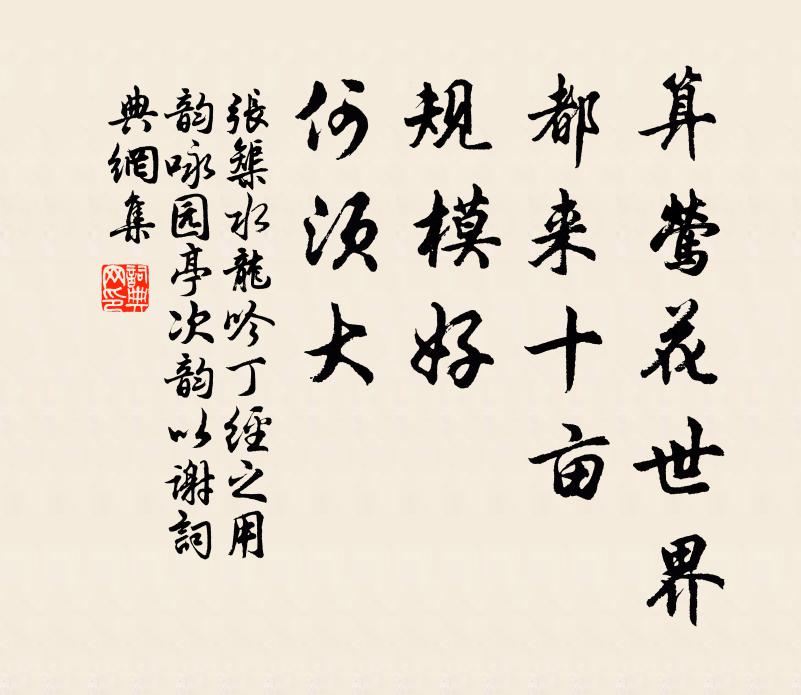 算莺花世界
都来十亩
规模好
何须大
張榘水龍吟丁經之用
韵咏园亭次韵以谢詞
典網集
詞典网印